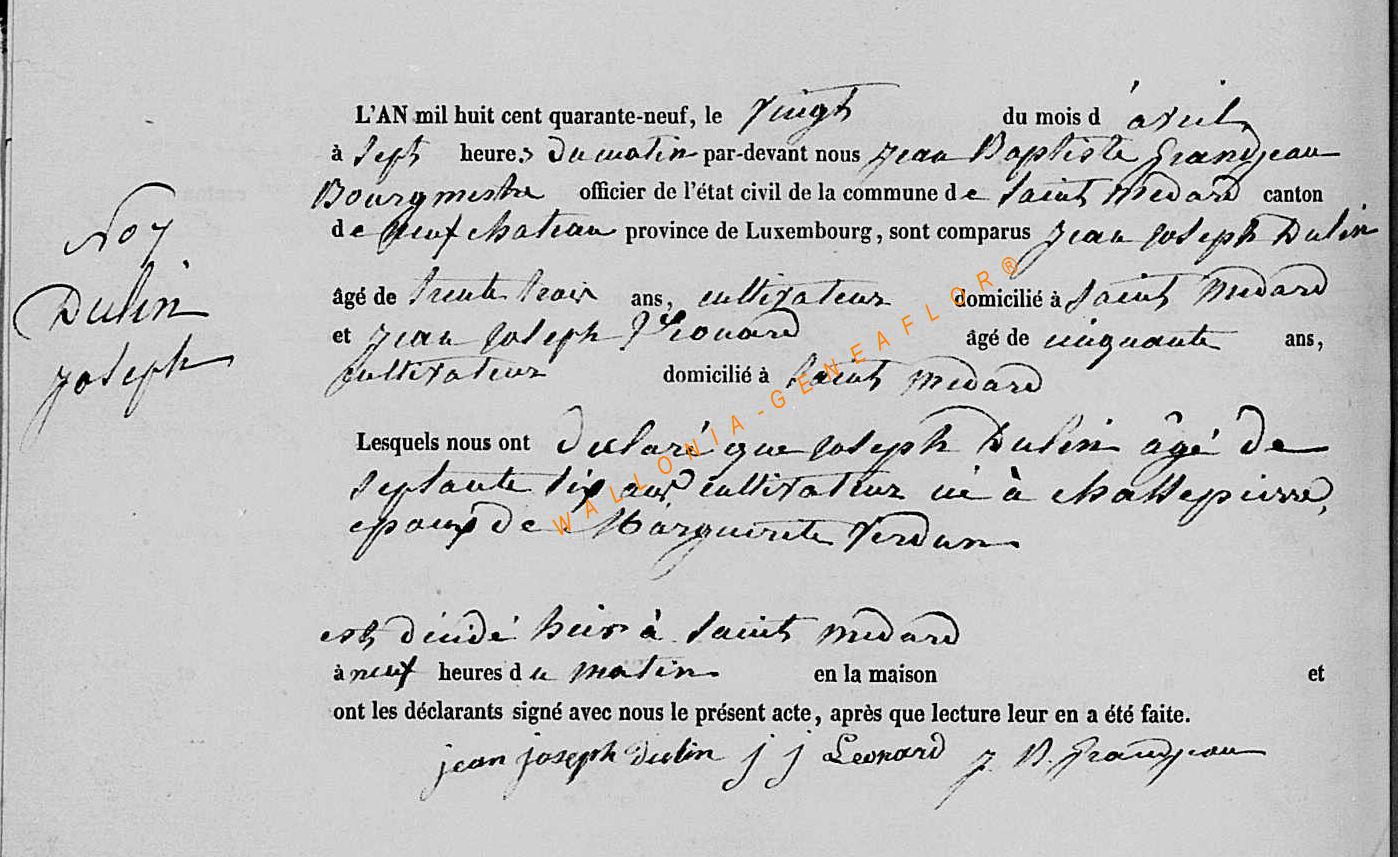 L'AN mil huit cent quarante-neuf, le Vingt du mois d'avril
à Sept heures du matin par-devant nous Jean Baptiste Grandjean
Bourgmestre officier de l'état civil de la commune de Saint Medard canton
de neufchateau province de Luxembourg, sont comparus Jean Joseph Dulin
âgé de trente trois ans, cultivateur domicilié à Saint Medard
et Jean Joseph Léonard âgé de cinquante ans,
cultivateur domicilié à Saint Medard
Lesquels nous ont declaré que Joseph Dulin âgé de
septante six ans cultivateur né à chattepierre,
epoux de Marguerite Verdun
est décidé hier à Saint Medard
à neuf heures du matin en la maison et
ont les déclarants signé avec nous le présent acte, après que lecture leur en a été faite.
jean joseph dulin j j Leonard J. B. Grandjean
No 7
Dulin
Joseph
WALLONIA-GENEAFLOR®